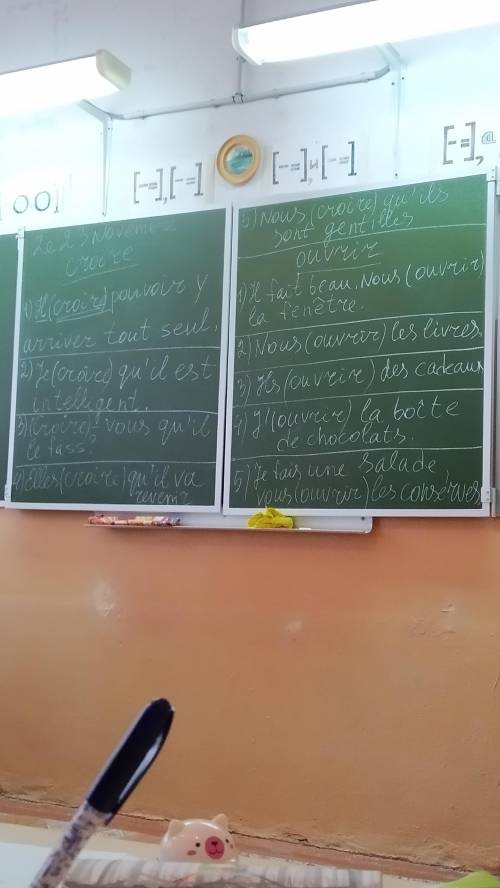 Le 23 Novembre
croire
1) Il (croire) pouvoir y
arriver tout seul.
2) Je (croire) qu'il est
intelligent.
3) (croire)-vous qu'il
le fass?
4) Elles (croire) qu'il va
revenir
5) Nous (croire) qu'ils
sont gentilles
ouvrir
1) Il fait beau. Nous (ouvrir)
la fenêtre.
2) Nous (ouvrir) les livres.
3) Ils (ouvrir) des cadeaux
4) J'(ouvrir) la boîte
de chocolats.
5) Je fais une salade
vous (ouvrir) les consérves